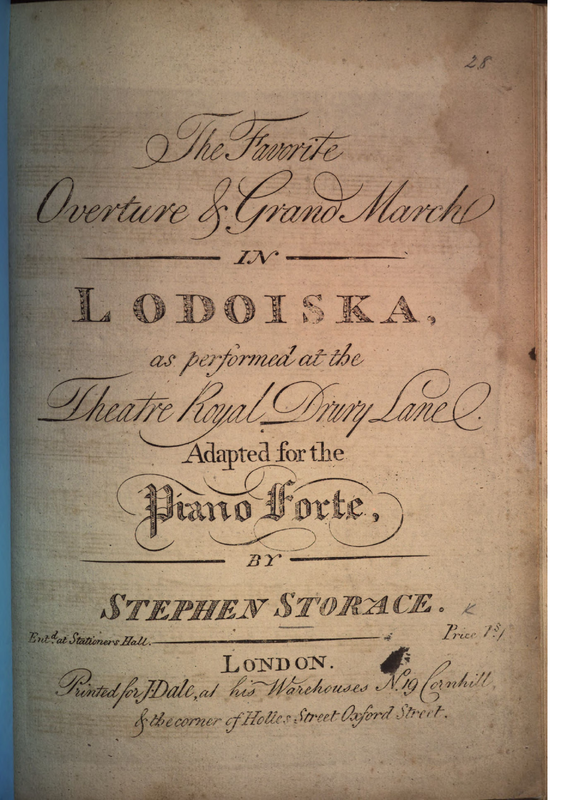 28
The Favorite
Overture & Grand March
IN
LODOISKA,
as performed at the
Theatre Royal Drury Lane.
Adapted for the
Piano Forte,
BY
STEPHEN STORACE.
Entd. at Stationers Hall.
Price 1s/
LONDON.
Printed for J. Dale, at his Warehouses No. 19 Cornhill,
& the corner of Holles Street Oxford Street.